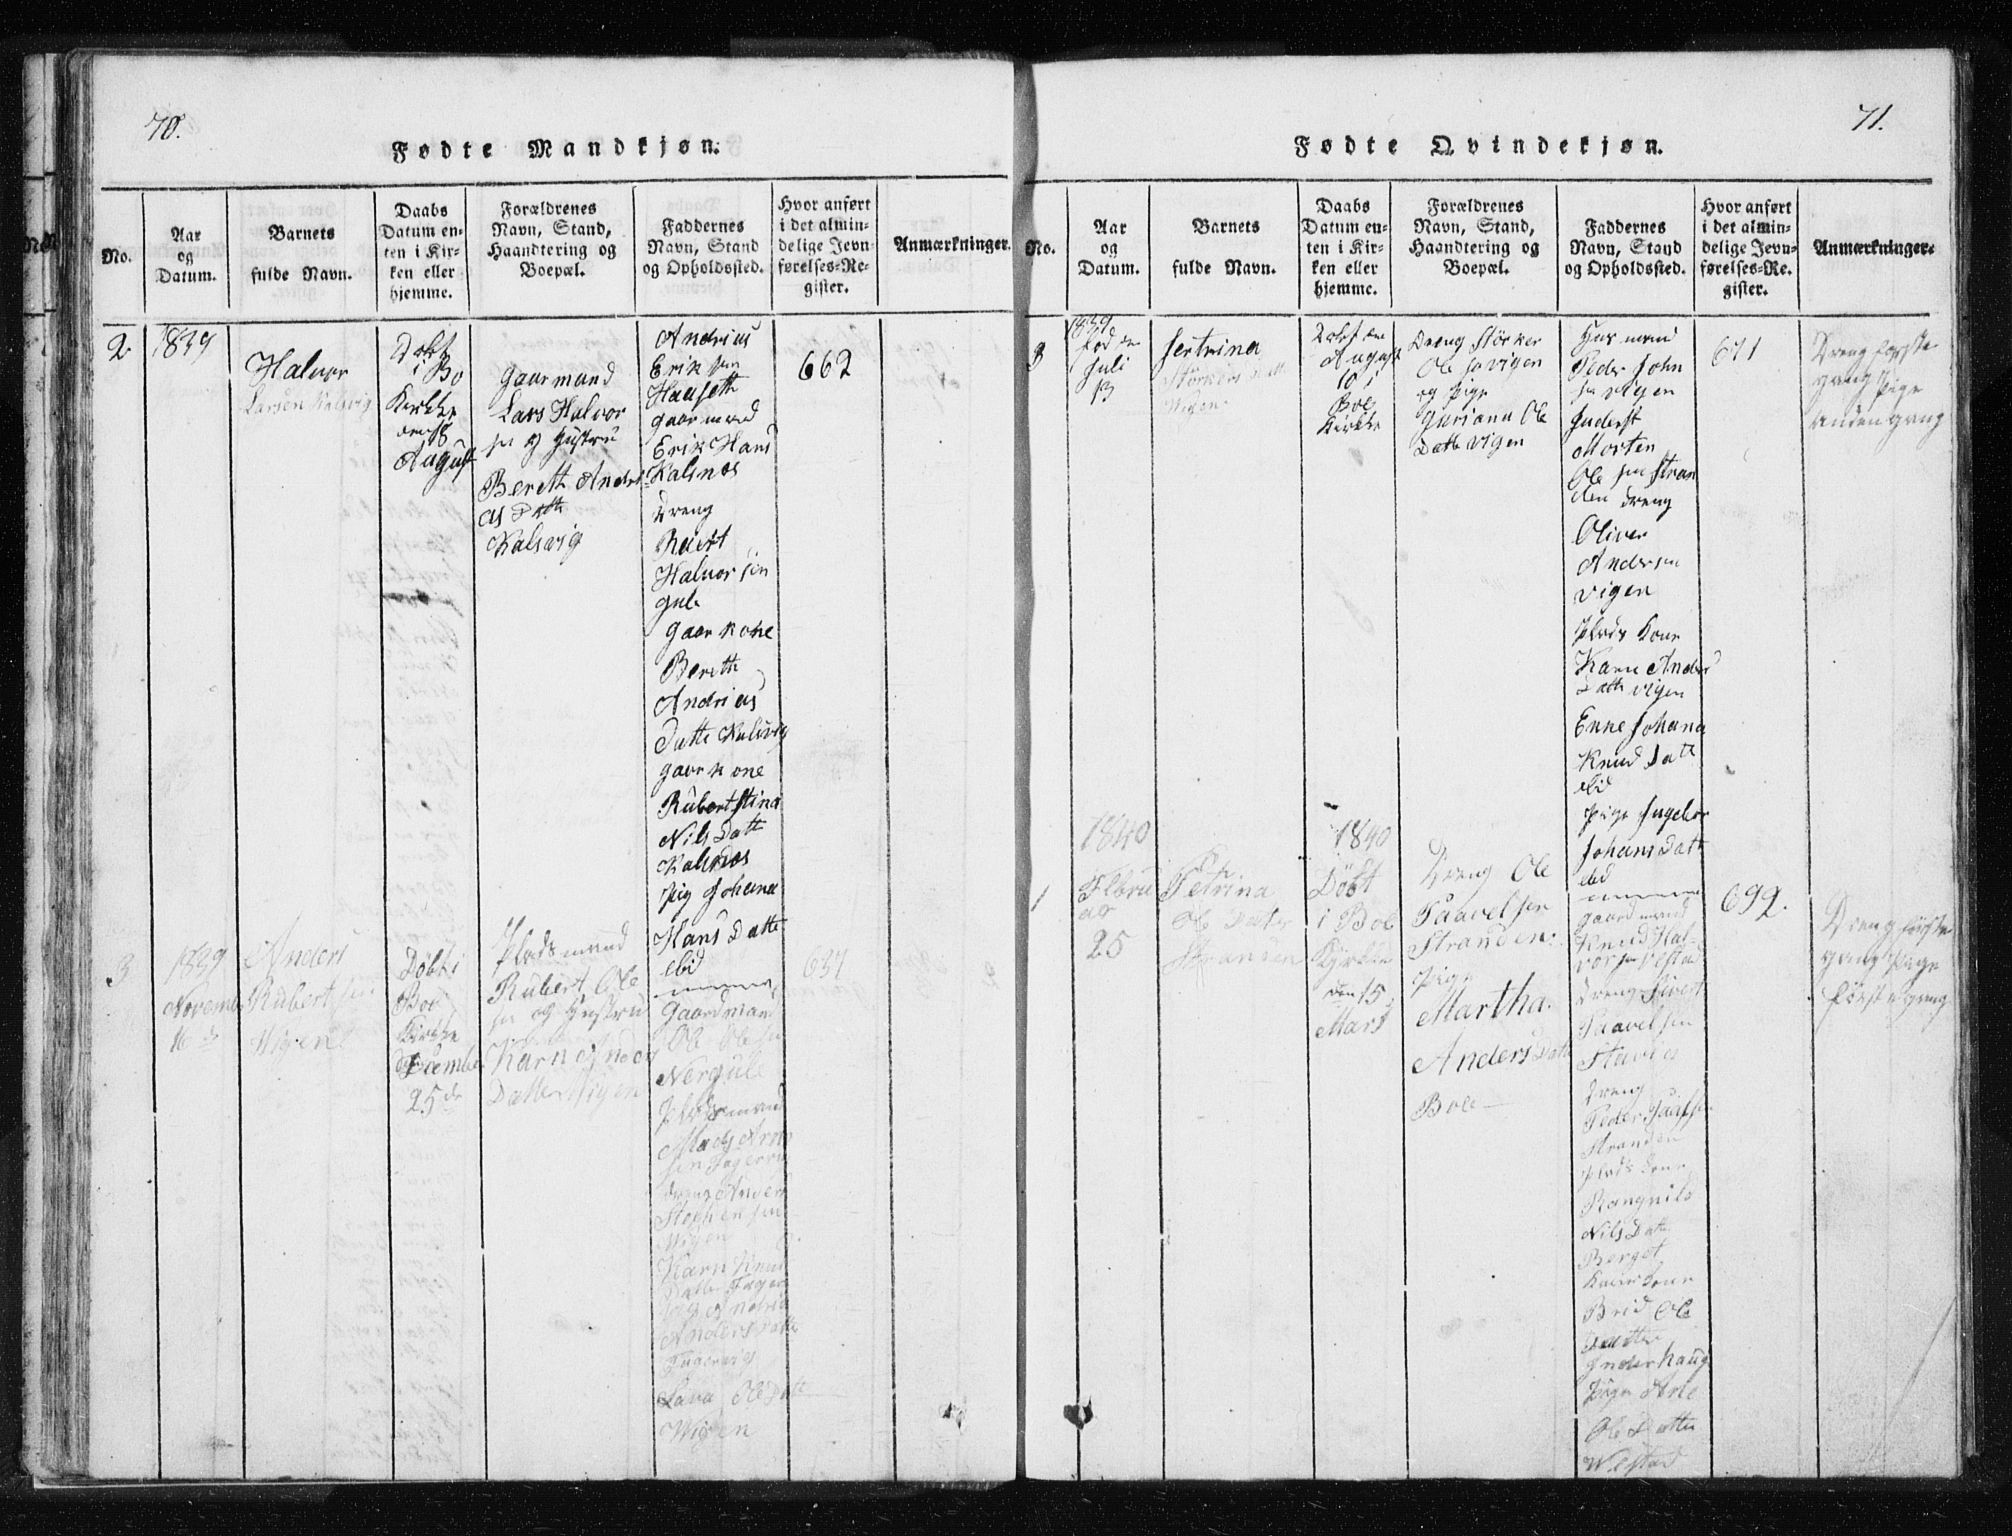 70.
Fødte Mandkjøn.
No.
Aar
og
Datum.
Barnets
fulde Navn.
Daabs
Datum en-
ten i Kir-
ken eller
hjemme.
Forældrenes
Navn, Stand,
Haandtering og
Boepæl.
Faddernes
Navn, Stand
og Opholdssted.
Hvor anført
i det almin-
delige Jevn-
førelses-Re-
gister.
Anmærkninger.
2
1839
Halvor
Larsen Kalsvig
Døbt
i Bo
Kirkke
August
Gaarmand
Lars Halvor
sen og Hustru
Bereth Andri
as Datte
Kalsvig
Andrias
Erik sen
Hauseth
gaarmand
Erik Hans
Kalsnes
Dreng
Halvor sen
gule
gaar kone
Bereth
Andrias
Datte Kalsvig
gaar kone
Rubertstina
Nils Datt
Kalsnes
Pig Johana
Hans Datte
ibid
662
3
1839
November
16
Anders
Rubert sen
Wigen
Døbt i
Boe
Kirkke
December
25de
Pladsmand
Rubert Ole
sen og Hustru
Karn Anders
Datter Wigen
Gaardmand
Ole Ole sen
Nergule
Pladsmand
Mads Arn
sen
Dreng Anders
Stephen sen
Wigen
Karn Knud
Datter
Anders Datte
Ole Datt
Wigen
637
71.
Fødte Qvindekjøn.
No.
Aar
og
Datum.
Barnets
fulde Navn.
Daabs
Datum en-
ten i Kir-
ken eller
hjemme.
Forældrenes
Navn, Stand,
Haandtering og
Boepæl.
Faddernes
Navn, Stand
og Opholdssted.
Hvor anført
i det almin-
delige Jevn-
førelses-Re-
gister.
Anmærkninger.
3
1839
Juli
Wigen
Døbt den
August
10 i
Boe
Kirkke
Dreng Störker
Ole sen vigen
og Pige
Guriana Ole
Datte vigen
Husmand
Peder John
sen vigen
Inderst
Morten
Ole sen Stran
den Dreng
Oliver
Andersen
vigen
Plads kone
Karn Anders
Datte vigen
Enne Johana
Knud Datt
ibid
Pige Ingebor
Johans Datt
ibid
671
Dreng første
gang Pige
anden gang
1
1840
Februar
25
Petrina
Ole Datter
Stranden
1840
Döbt
i Boe
Kyrkke
den 15
Mars
Dreng Ole
Paavel sen
Stranden.
Pige
Martha.
Anders Datte
Boe
gaardmand
Knud Hal-
vor sen
Dreng Sivert
Paavel sen
Dreng
Peder
Stranden
Plads kone
Rangnild
Nils Datte
Berget
Brid Ole
Datter
Inderhaug
Pige Ane
Ole Datter
Westad
692.
Dreng første
gang Pige
første gang